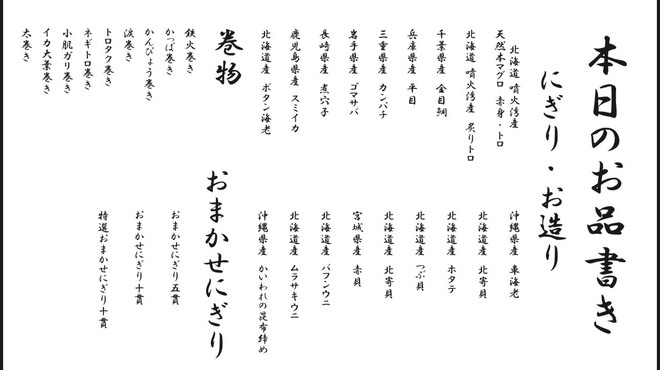 本日のお品書き
にぎり・お造り
北海道 噴火湾産
天然本マグロ 赤身・トロ
北海道 噴火湾産 炙りトロ
千葉県産 金目鯛
兵庫県産 平目
三重県産 カンパチ
岩手県産 ゴマサバ
長崎県産 煮穴子
鹿児島県産 スミイカ
北海道産 ボタン海老
沖縄県産 車海老
北海道産 北寄貝
北海道産 ホタテ
北海道産 つぶ貝
北海道産 北寄貝
宮城県産 赤貝
北海道産 バフンウニ
北海道産 ムラサキウニ
沖縄県産 かいわれの昆布締め
巻物
鉄火巻き
かっぱ巻き
かんぴょう巻き
涙巻き
トロタク巻き
ネギトロ巻き
小肌ガリ巻き
イカ大葉巻き
太巻き
おまかせにぎり
おまかせにぎり五貫
おまかせにぎり十貫
特選おまかせにぎり十貫